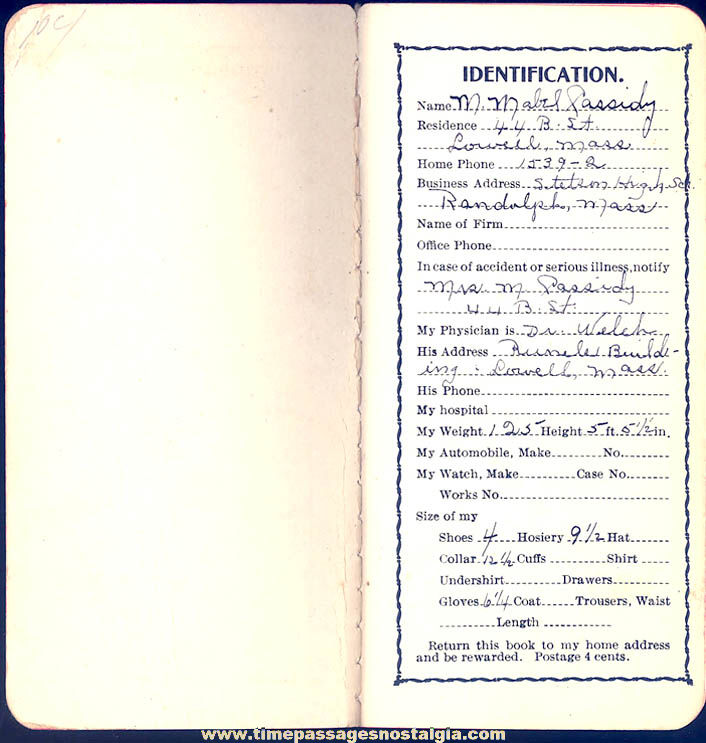 10c/
IDENTIFICATION.
Name M. Mabel Cassidy
Residence 44 B. St.
Lowell, Mass
Home Phone 1539-2
Business Address Stetson High Sch.
Randolph, Mass
Name of Firm
Office Phone
In case of accident or serious illness, notify
Mrs. M Cassidy
44 B. St.
My Physician is Dr. Welch
His Address Runels Build-
ing. Lowell, Mass.
His Phone
My hospital
My Weight 125 Height 5 ft. 5½ in.
My Automobile, Make No.
My Watch, Make Case No.
Works No.
Size of my
Shoes 4 Hosiery 9½ Hat
Collar 12½ Cuffs Shirt
Undershirt Drawers
Gloves 6¼ Coat Trousers, Waist
Length
Return this book to my home address
and be rewarded. Postage 4 cents.
www.timepassagesnostalgia.com